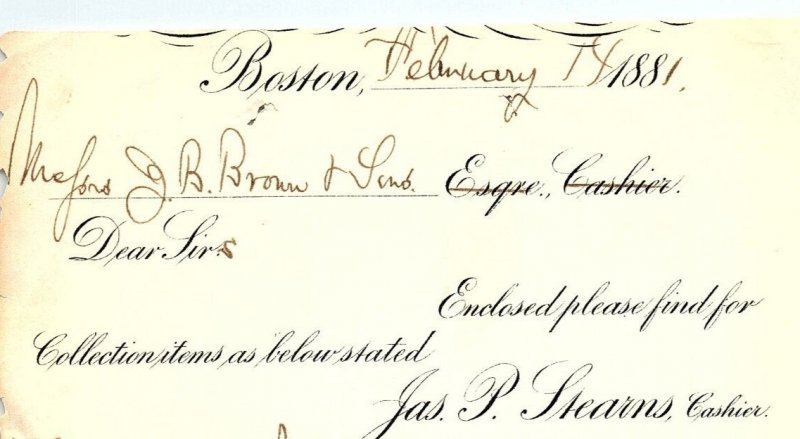 Boston, February 14 1881.
Messrs J. B. Brown & Sons. Esqre., Cashier.
Dear Sirs
Enclosed please find for
Collection items as below stated
Jas. P. Stearns, Cashier.